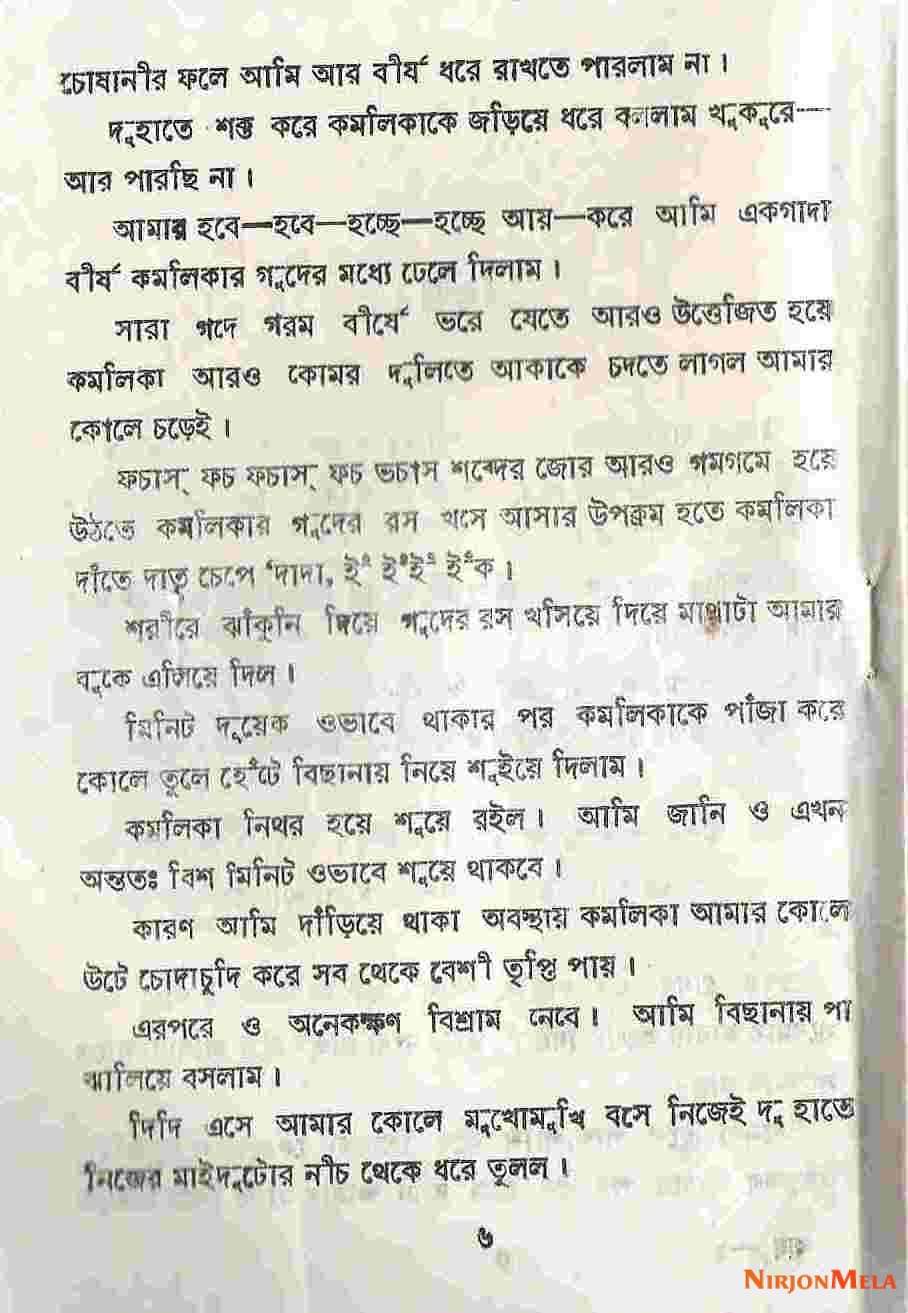 চোষানীর ফলে আমি আর বীর্য ধরে রাখতে পারলাম না।
দুহাতে শক্ত করে কমলিকাকে জড়িয়ে ধরে বললাম খুকুরে—
আর পারছি না।
আমার হবে—হবে—হচ্ছে—হচ্ছে আয়—করে আমি একগাদা
বীর্য কমলিকার গুদের মধ্যে ঢেলে দিলাম।
সারা গদে গরম বীর্যে ভরে যেতে আরও উত্তেজিত হয়ে
কমলিকা আরও কোমর দুলিতে আকাকে চদতে লাগল আমার
কোলে চড়েই।
ফচাস্ ফচ ফচাস্ ফচ ভচাস শব্দের জোর আরও গমগমে হয়ে
উঠতে কমলিকার গুদের রস খসে আসার উপক্রম হতে কমলিকা
দাঁতে দাত চেপে ‘দাদা, ইঁ ইঁইঁ ইঁক।
শরীরে ঝাঁকুনি দিয়ে গুদের রস খসিয়ে দিয়ে মাথাটা আমার
বুকে এলিয়ে দিল।
মিনিট দুয়েক ওভাবে থাকার পর কমলিকাকে পাঁজা করে
কোলে তুলে হেঁটে বিছানায় নিয়ে শুইয়ে দিলাম।
কমলিকা নিথর হয়ে শুয়ে রইল। আমি জানি ও এখন
অন্ততঃ বিশ মিনিট ওভাবে শুয়ে থাকবে।
কারণ আমি দাঁড়িয়ে থাকা অবস্থায় কমলিকা আমার কোলে
উটে চোদাচুদি করে সব থেকে বেশী তৃপ্তি পায়।
এরপরে ও অনেকক্ষণ বিশ্রাম নেবে। আমি বিছানায় পা
ঝালিয়ে বসলাম।
দিদি এসে আমার কোলে মুখোমুখি বসে নিজেই দু হাতে
নিজের মাইদুটোর নীচ থেকে ধরে তুলল।
৬
NIRJONMELA